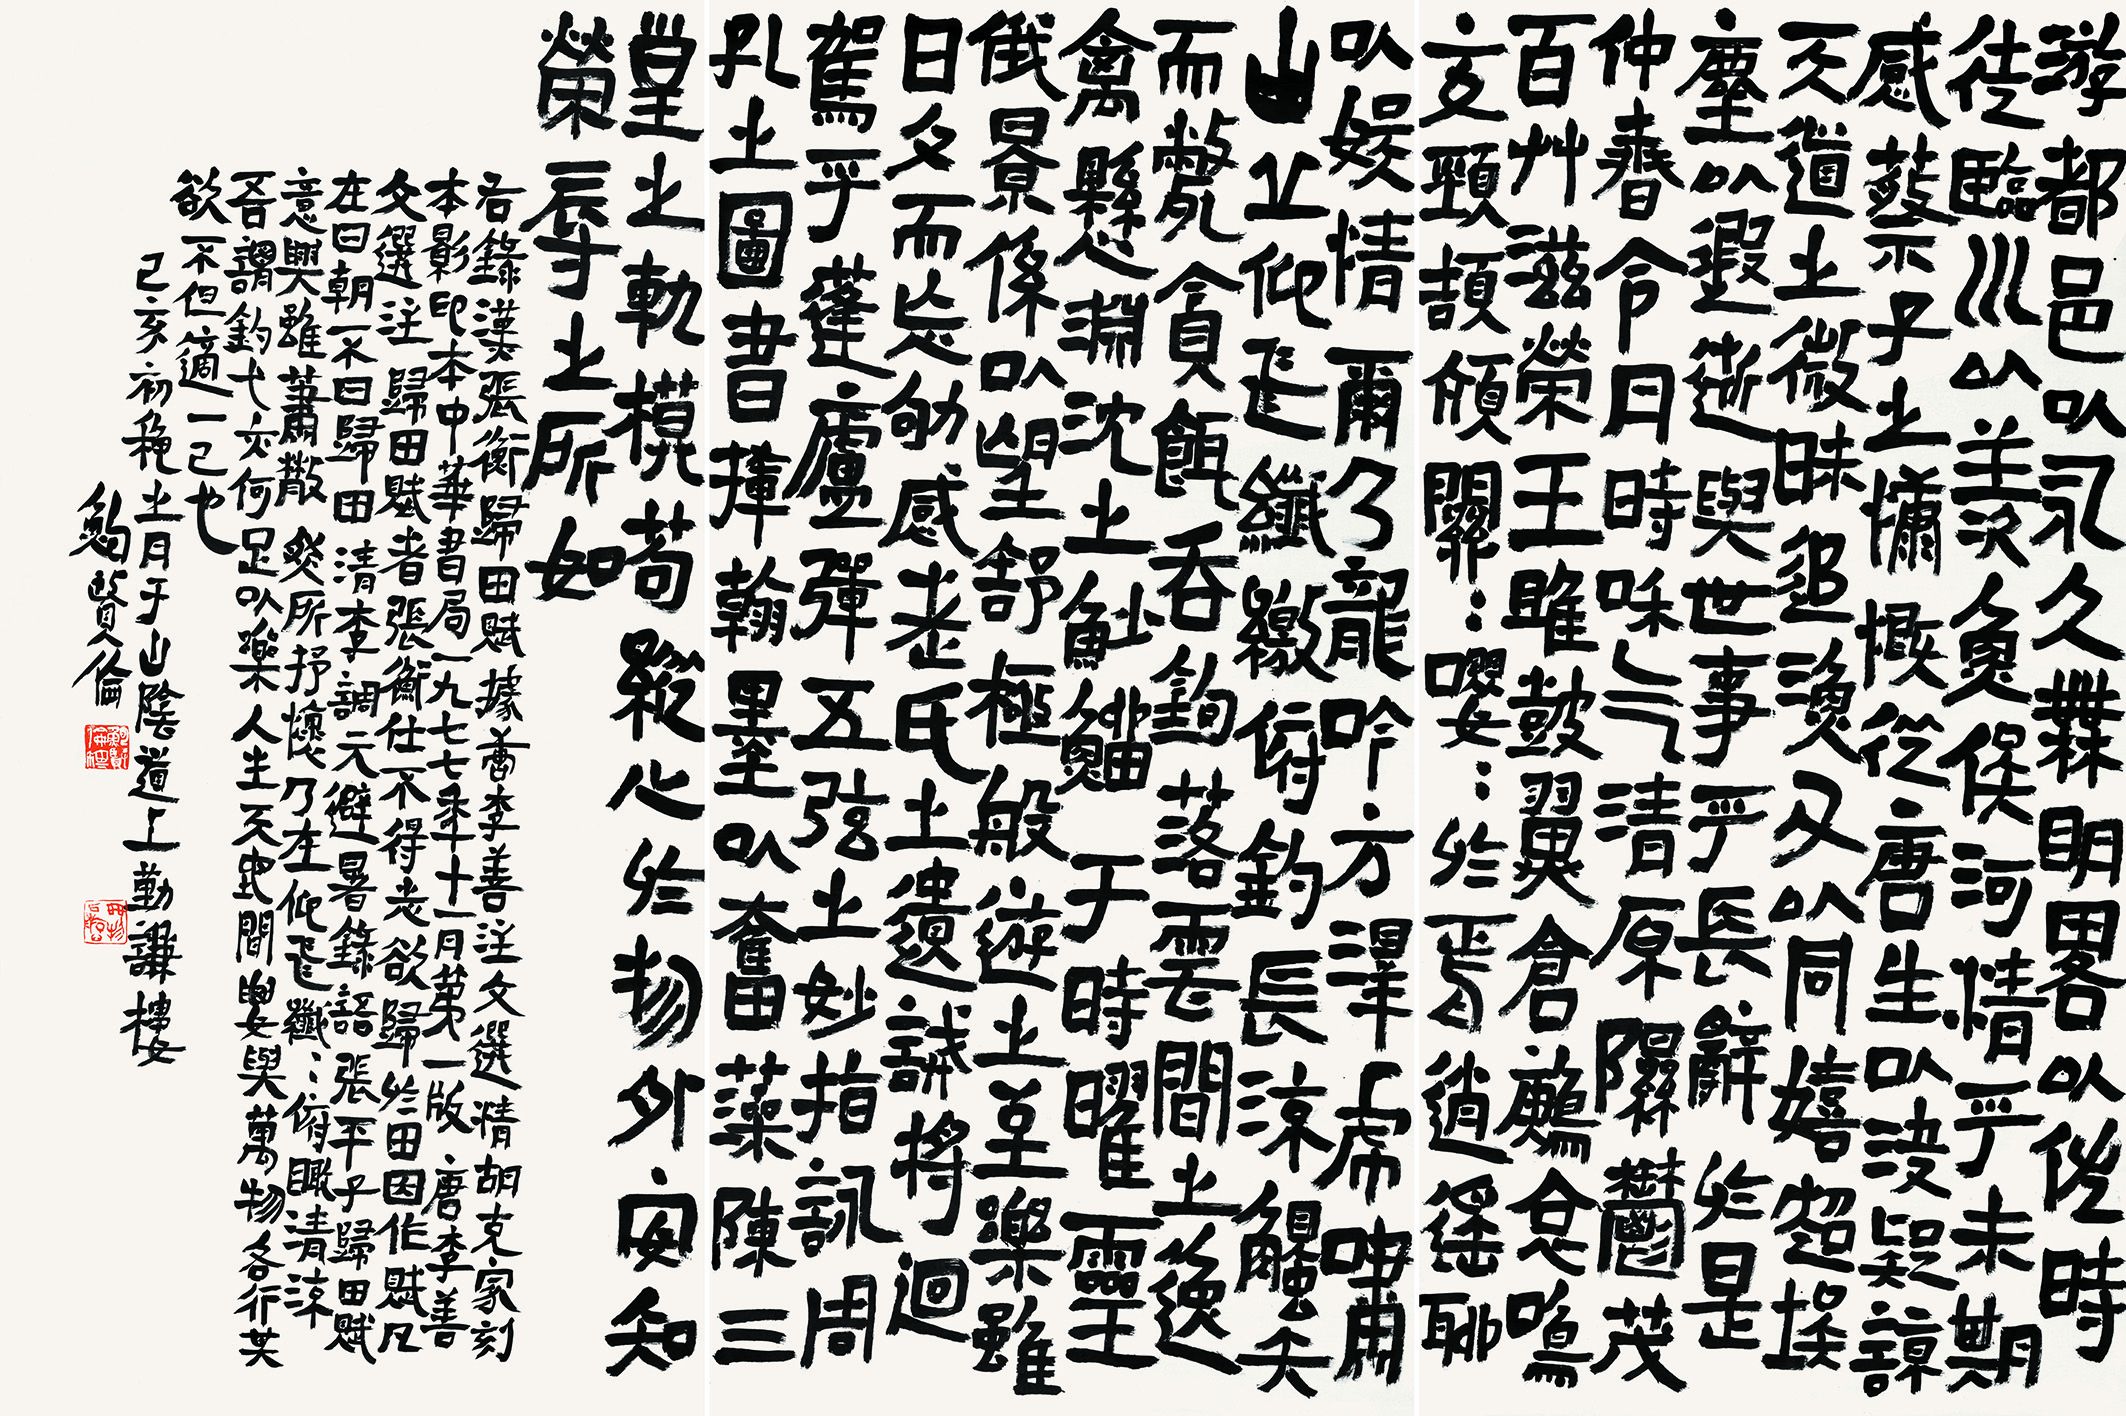 游都邑以永久無明略以佐時
徒臨川以羨魚俟河清乎未期
感蔡子之慷慨從唐生以決疑諒
天道之微昧追漁父以同嬉超埃
塵以遐逝與世事乎長辭於是
仲春令月時和气清原隰鬱茂
百艸滋榮王雎鼓翼倉鶊哀鳴
交頸頡頏關：嚶：於焉逍遙聊
以娛情爾乃龍吟方澤虎嘯
山丘仰飛纖繳俯釣長流觸矢
而斃貪餌吞鉤落雲間之逸
禽懸淵沈之魦鰡于時曜靈
俄景係以望舒極般遊之至樂雖
日夕而忘劬感老氏之遺誡將迴
駕乎蓬廬彈五弦之妙指詠周
孔之圖書揮翰墨以奮藻陳三
皇之軌模苟縱心於物外安知
榮辱之所如
右錄漢張衡歸田賦據李善注文選清胡克家刻
本影印本中華書局一九七七年十一月第一版 唐李善
文選注 歸田賦者張衡仕不得志欲歸於田因作賦凡
在曰朝不曰歸田 清李調元避暑錄語張平子歸田賦
意興雖蕭散 然所抒懷乃在仰飛纖：俯瞰清流
吾謂釣弋亦何足以樂人生天地間要與萬物各行其
欲不但適一己也
己亥初秋之月于山陰道上勤謙樓
鮑賢倫